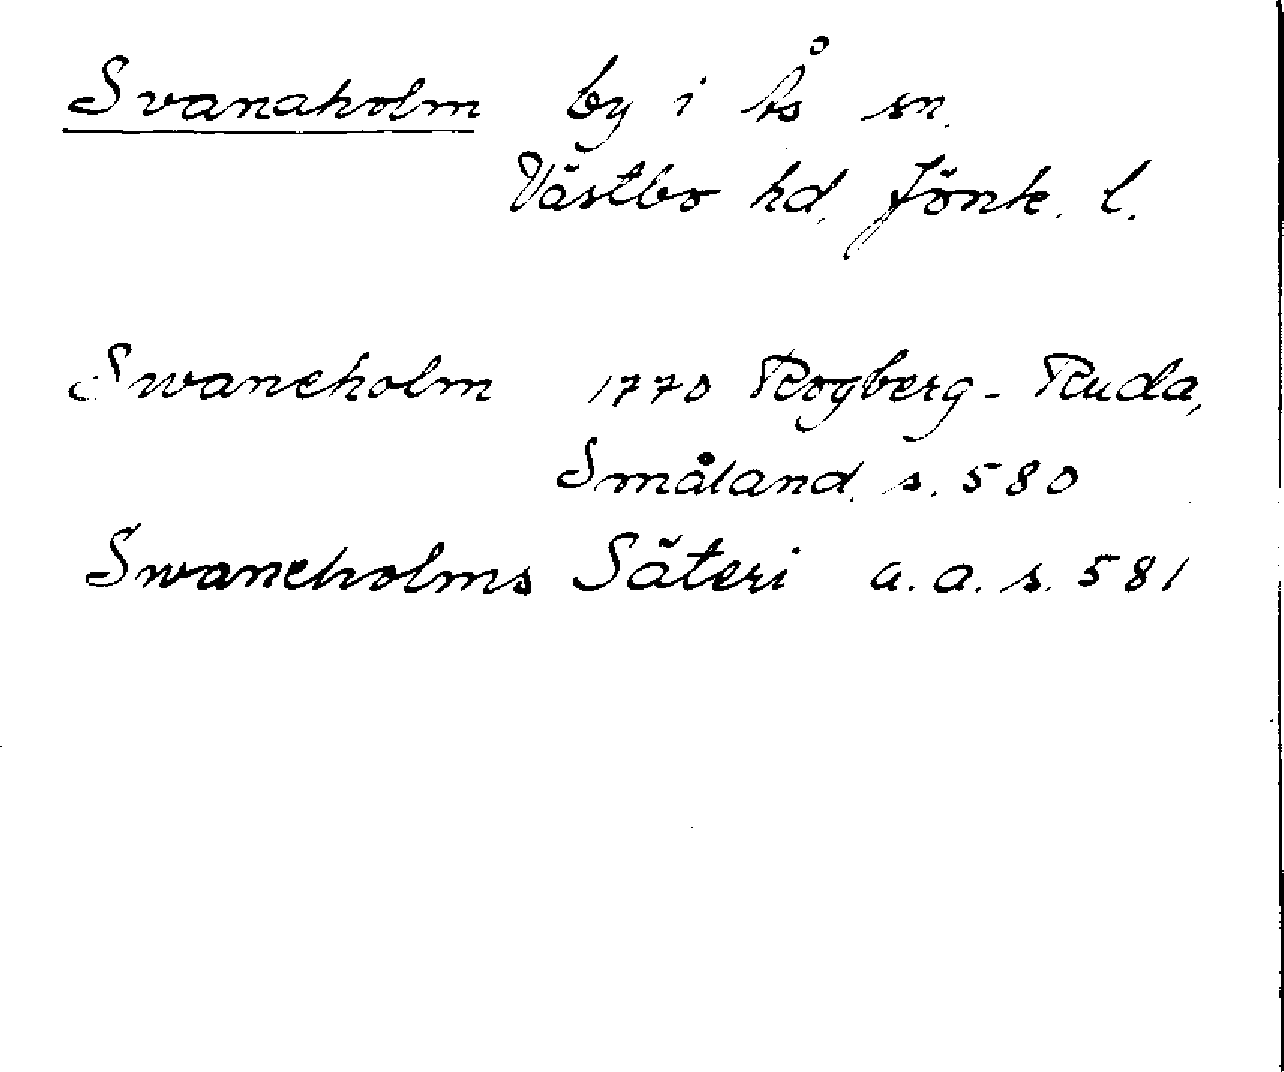 Svanaholm by i Ås sn.
Västbo hd. Jönk. l.
Swaneholm 1770 Rogberg-Ruda,
Småland. s. 580
Swaneholms Säteri a.a. s. 581